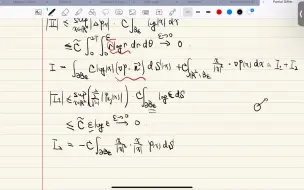 |II| ≤ sup_{x∈ℝ²} |Δp(x)| · C ∫_{∂B_ε} |log|x|| dx
≤ C̃ ∫_0^{2π} ∫_0^ε r|log r| dr dθ → 0 (ε→0)
I = ∫_{∂B_ε} C log|x| (∇p · n⃗) dS(x) + C ∫_{ℝ²\B_ε} x/|x|² · ∇p(x) dx = I₁ + I₂
|I₁| ≤ sup C ∫_{∂B_ε} log ε dS
≤ C̃ ε log ε → 0 (ε→0)
I₂ = -C ∫_{∂B_ε} x/|x|² · x/|x| p(x) dS